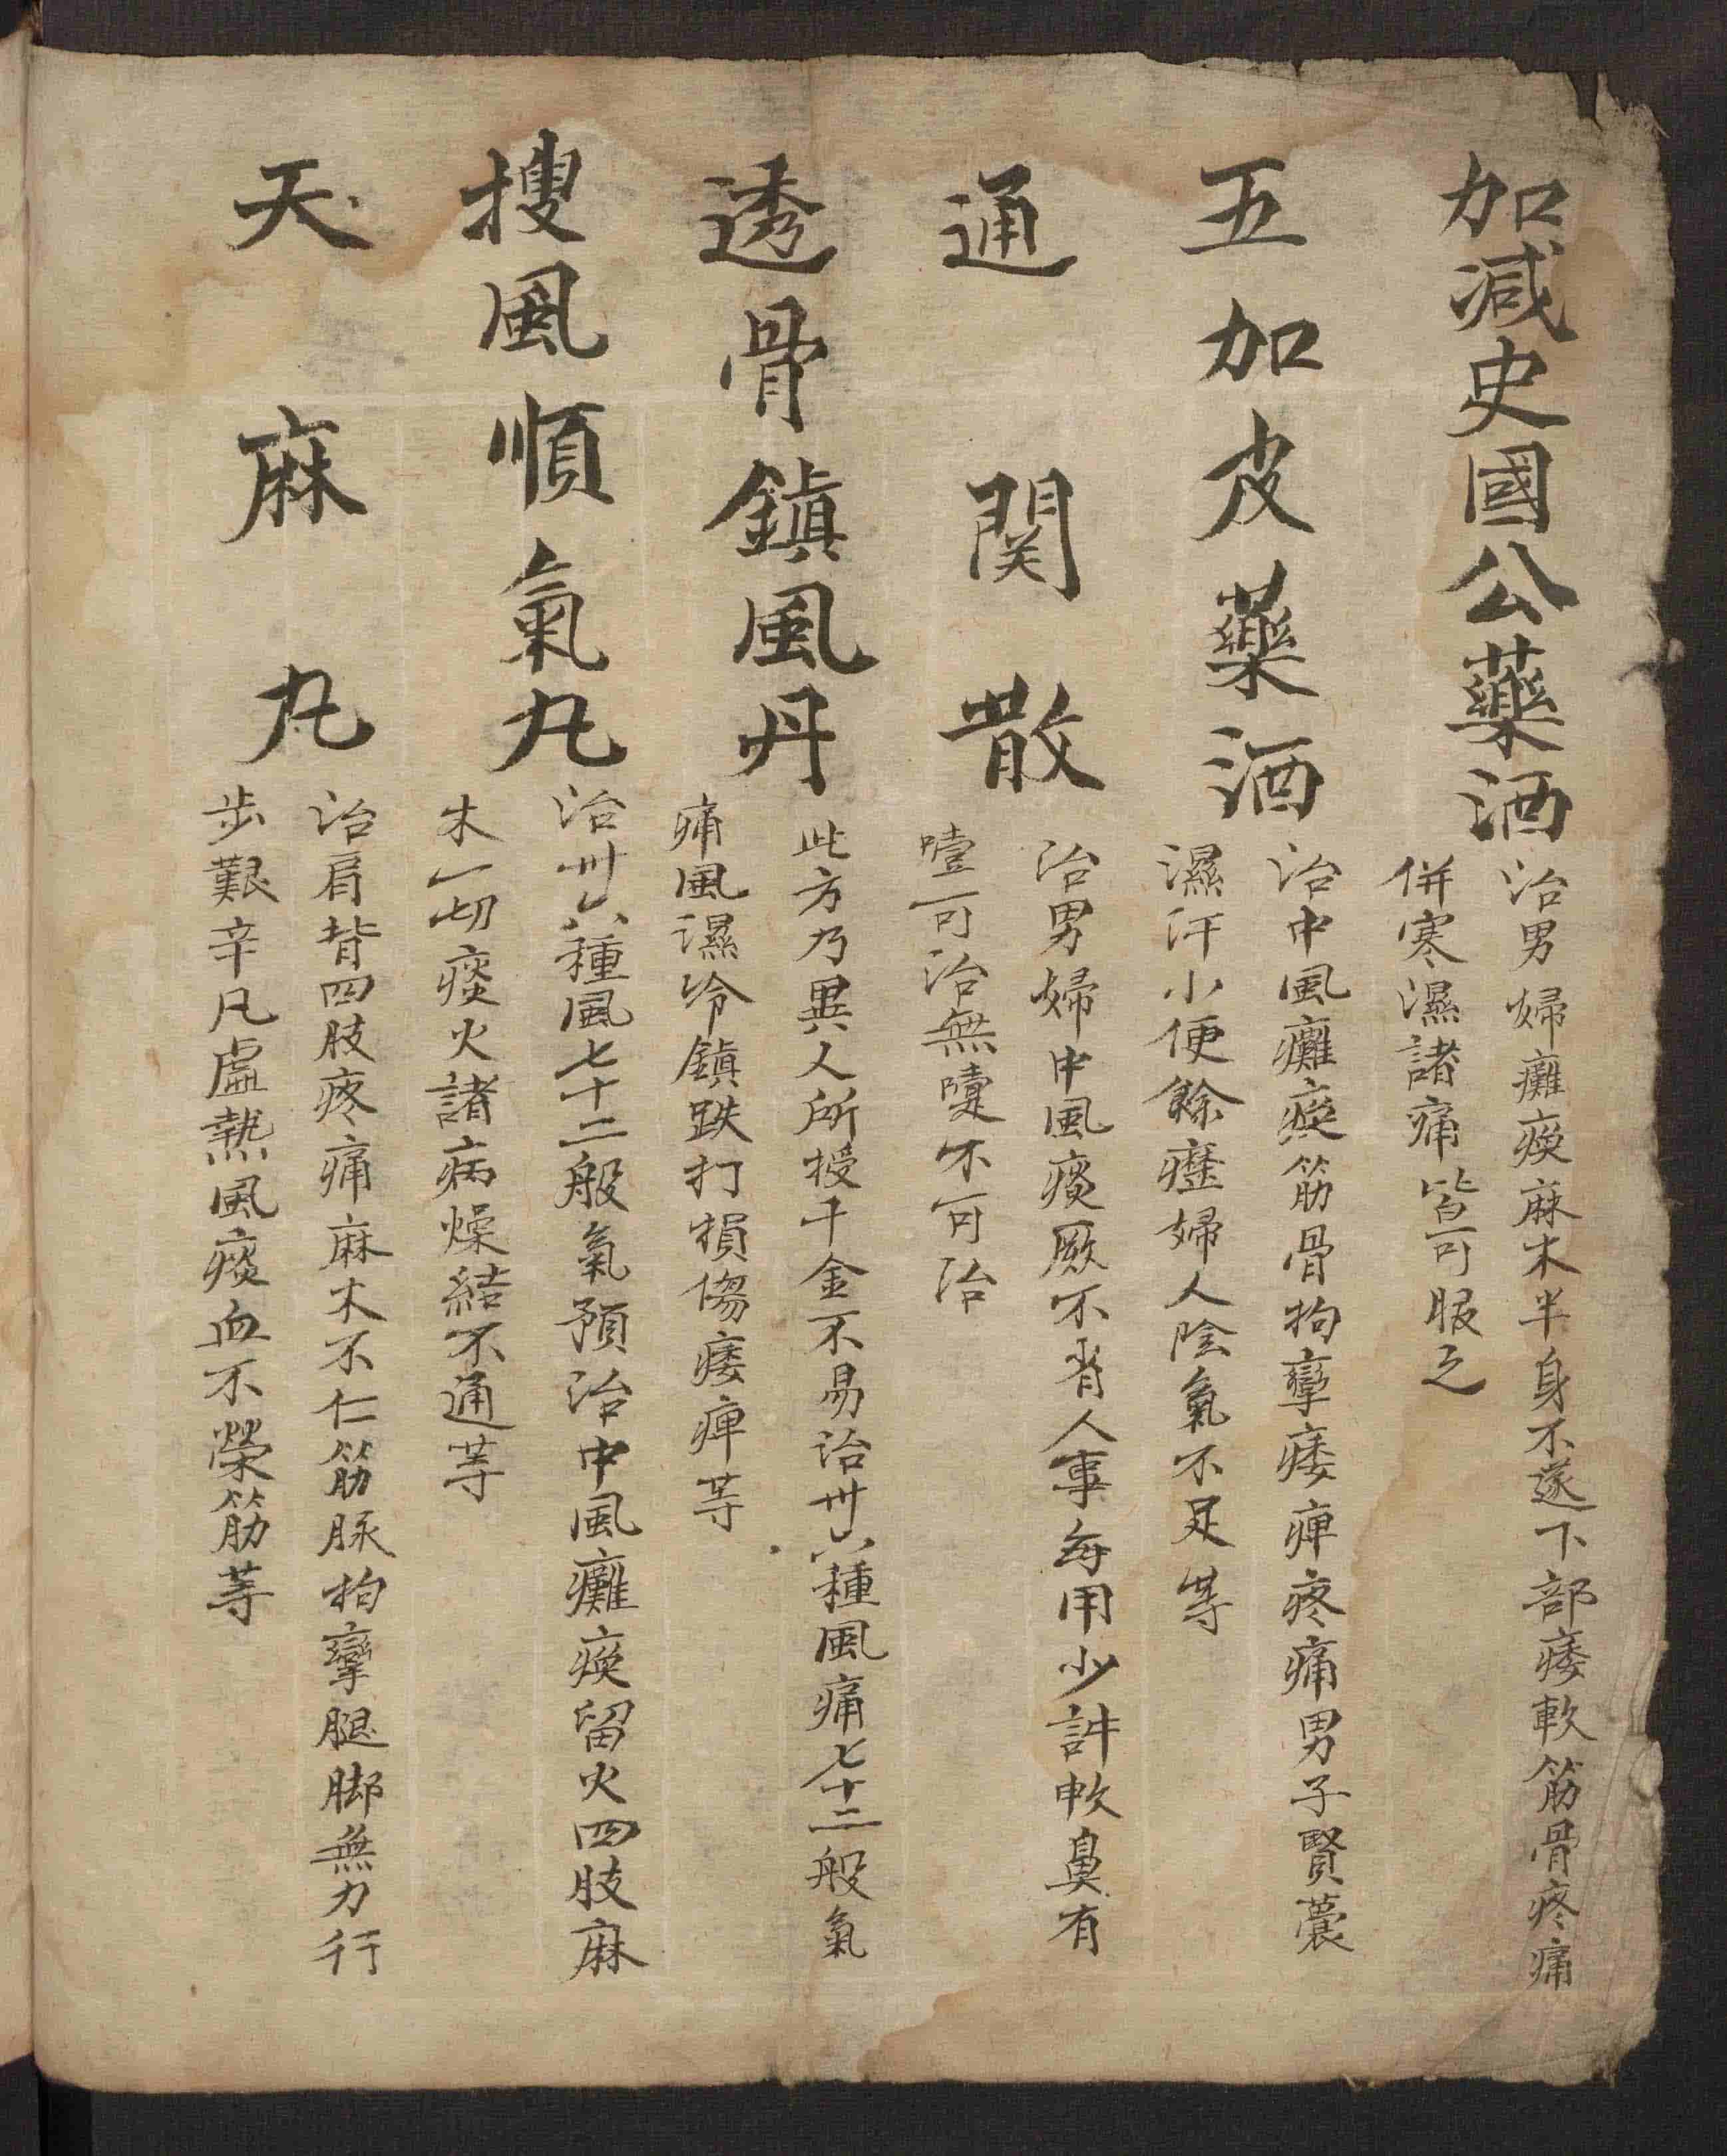 加減史國公藥酒
治男婦癱瘓麻木半身不遂下部痿軟筋骨疼痛
併寒濕諸痛皆可服之
五加皮藥酒
治中風癱瘓筋骨拘攣痿痺疼痛男子腎囊
濕汗小便餘瀝婦人陰氣不足等
通関散
治男婦中風痰厥不省人事每用少許吹鼻有
嚏可治無嚏不可治
透骨鎮風丹
此方乃異人所授千金不易治卅六種風痛七十二般氣
痛風濕冷鎮跌打損傷痿痺等
搜風順氣丸
治卅六種風七十二般氣預治中風癱瘓留火四肢麻
木一切痰火諸病燥結不通等
天麻丸
治肩背四肢疼痛麻木不仁筋脉拘攣腿脚無力行
步艱辛凡虛熱風痰血不榮筋等